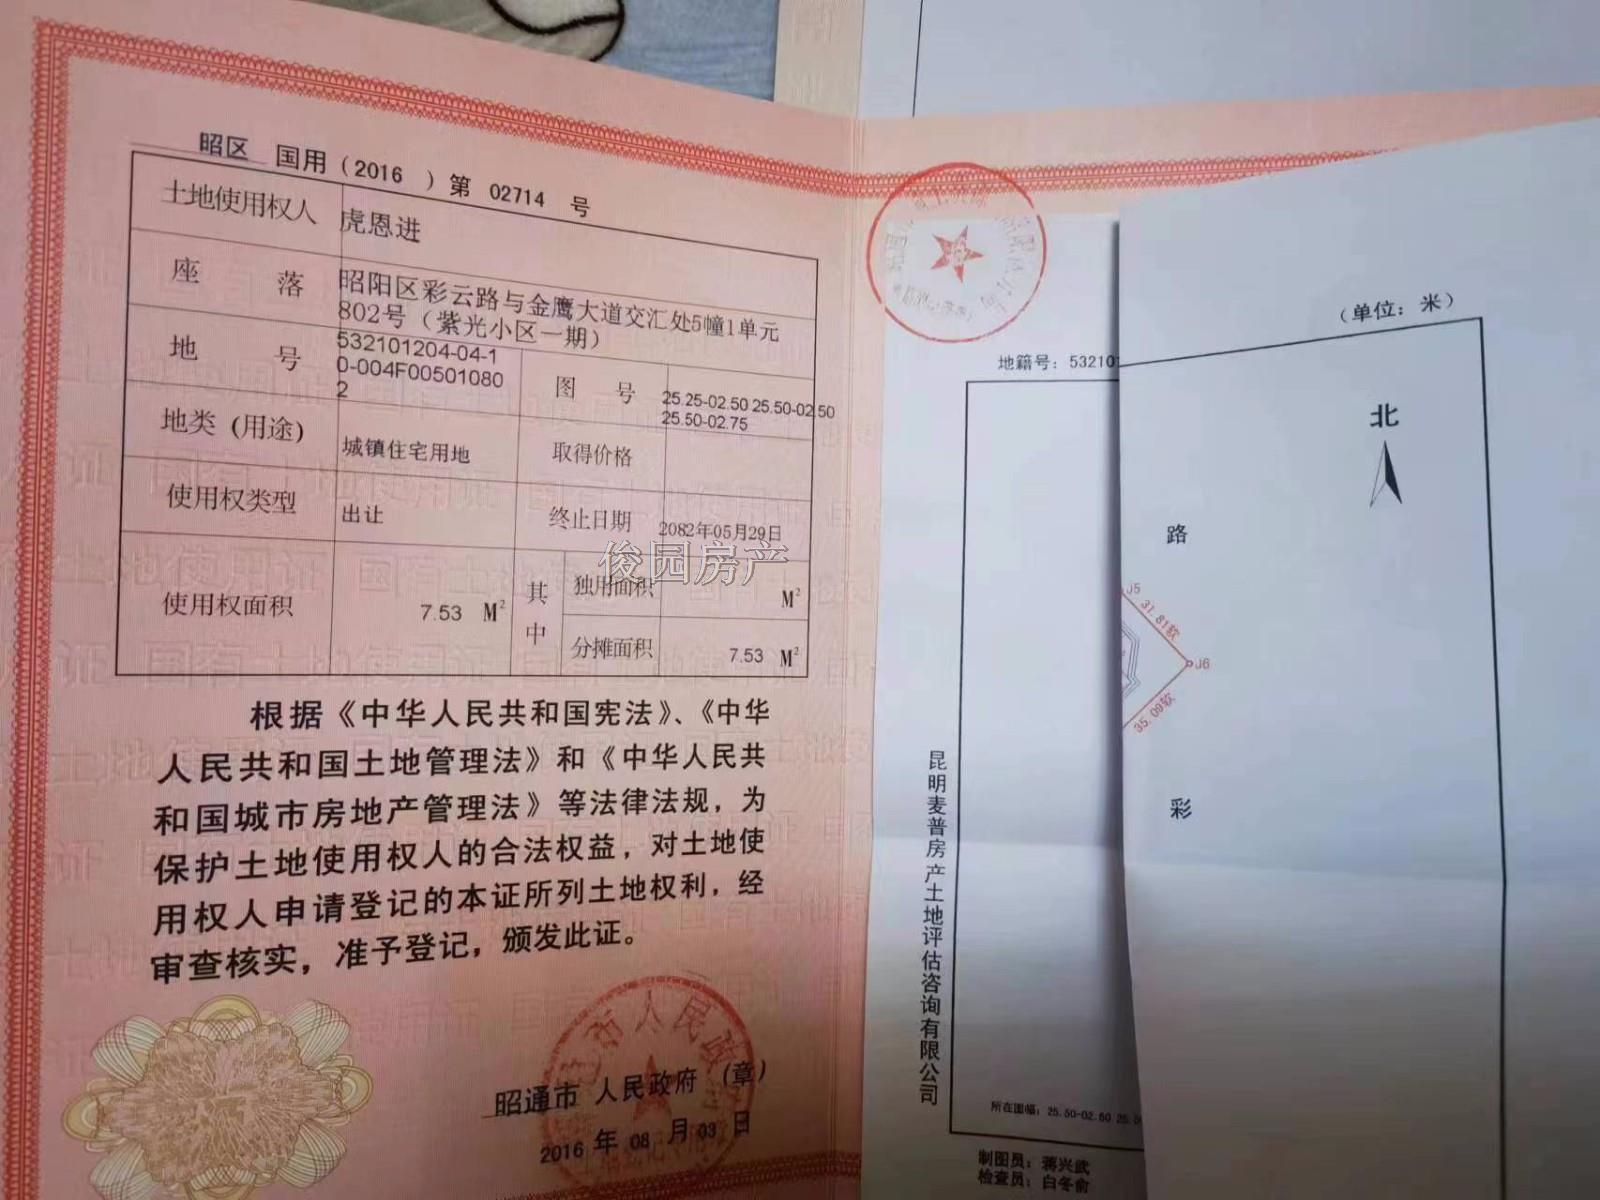 昭区 国用（2016 ）第 02714 号
土地使用权人 虎恩进
座落 昭阳区彩云路与金鹰大道交汇处5幢1单元
802号（紫光小区一期）
地号 532101204-04-1
0-004F00501080
2
图号 25.25-02.50 25.50-02.50
25.50-02.75
地类（用途） 城镇住宅用地 取得价格
使用权类型 出让 终止日期 2082年05月29日
使用权面积 7.53 M² 其中 独用面积 M²
分摊面积 7.53 M²
俊园房产
根据《中华人民共和国宪法》、《中华
人民共和国土地管理法》和《中华人民共
和国城市房地产管理法》等法律法规，为
保护土地使用权人的合法权益，对土地使
用权人申请登记的本证所列土地权利，经
审查核实，准予登记，颁发此证。
昭通市 人民政府 （章）
2016 年 08 月 03 日
市人民政
（单位：米）
地籍号：53210
北
路
J5
37.81软
J6
35.09软
彩
昆明麦普房产土地评估咨询有限公司
所在图幅：25.50-02.50 25.50
制图员：蒋兴武
检查员：白冬俞